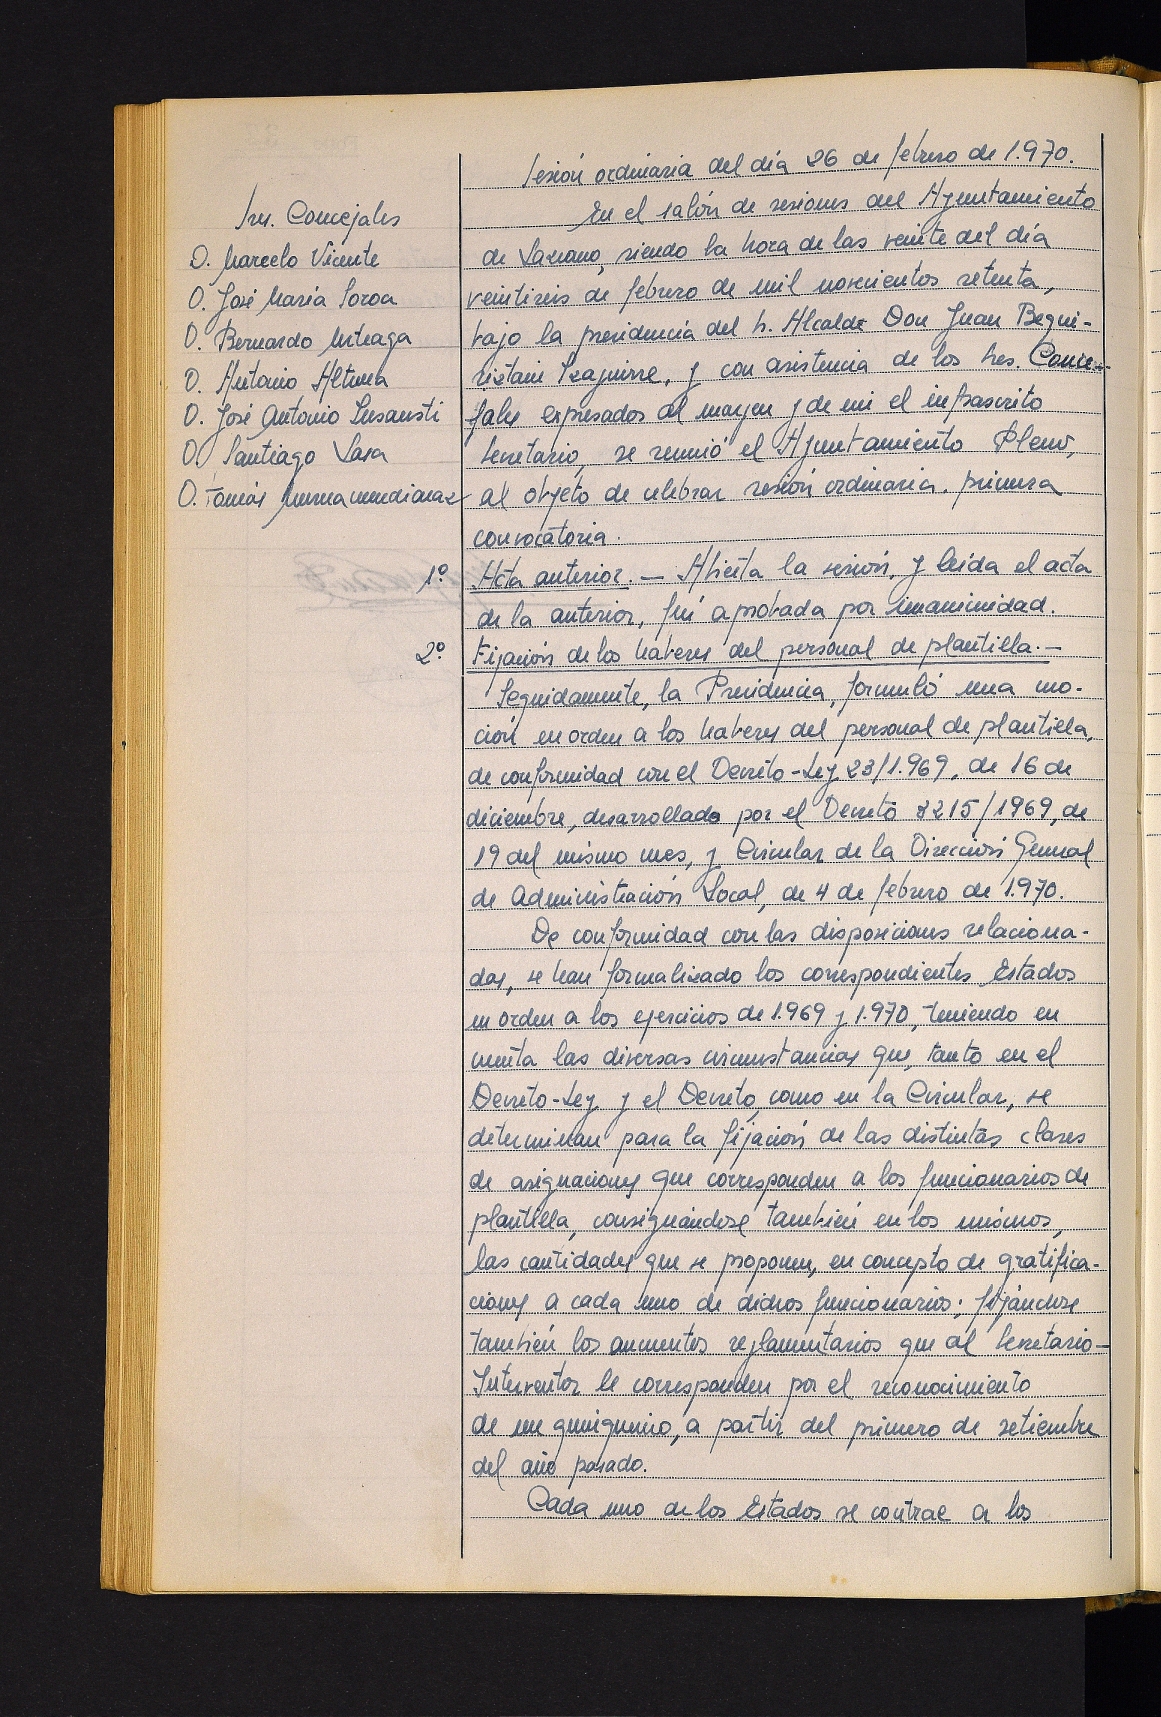 Sesión ordinaria del día 26 de febrero de 1.970.
Srs. Concejales
D. Marcelo Vicente
D. José María Soroa
D. Bernardo Urteaga
D. Antonio Altuna
D. José Antonio Insausti
D. Santiago Lasa
D. Tomás Muruamendiaraz
En el salón de sesiones del Ayuntamiento
de Lazcano, siendo la hora de las veinte del día
veintiseis de febrero de mil novecientos setenta,
bajo la presidencia del Sr. Alcalde Don Juan Begui-
ristain Izaguirre, y con asistencia de los Sres. Conce-
jales expresados al margen y de mi el infrascrito
Secretario, se reunió el Ayuntamiento Pleno,
al objeto de celebrar sesión ordinaria, primera
convocatoria.
1º Acta anterior.- Abierta la sesión, y leída el acta
de la anterior, fué aprobada por unanimidad.
2º Fijación de los haberes del personal de plantilla.-
Seguidamente, la Presidencia, formuló una mo-
ción en orden a los haberes del personal de plantilla,
de conformidad con el Decreto-Ley 23/1.969, de 16 de
diciembre, desarrollado por el Decreto 3215/1969, de
19 del mismo mes, y Circular de la Dirección General
de Administración Local, de 4 de febrero de 1.970.
De conformidad con las disposiciones relaciona-
das, se han formalizado los correspondientes Estados
en orden a los ejercicios de 1.969 y 1.970, teniendo en
cuenta las diversas circunstancias que, tanto en el
Decreto-Ley y el Decreto, como en la Circular, se
determinan para la fijación de las distintas clases
de asignaciones que corresponden a los funcionarios de
plantilla, consignándose también en los mismos,
las cantidades que se proponen, en concepto de gratifica-
ciones a cada uno de dichos funcionarios; fijándose
también los aumentos reglamentarios que al Secretario-
Interventor le corresponden por el reconocimiento
de un quinquenio, a partir del primero de setiembre
del año pasado.
Cada uno de los Estados se contrae a los